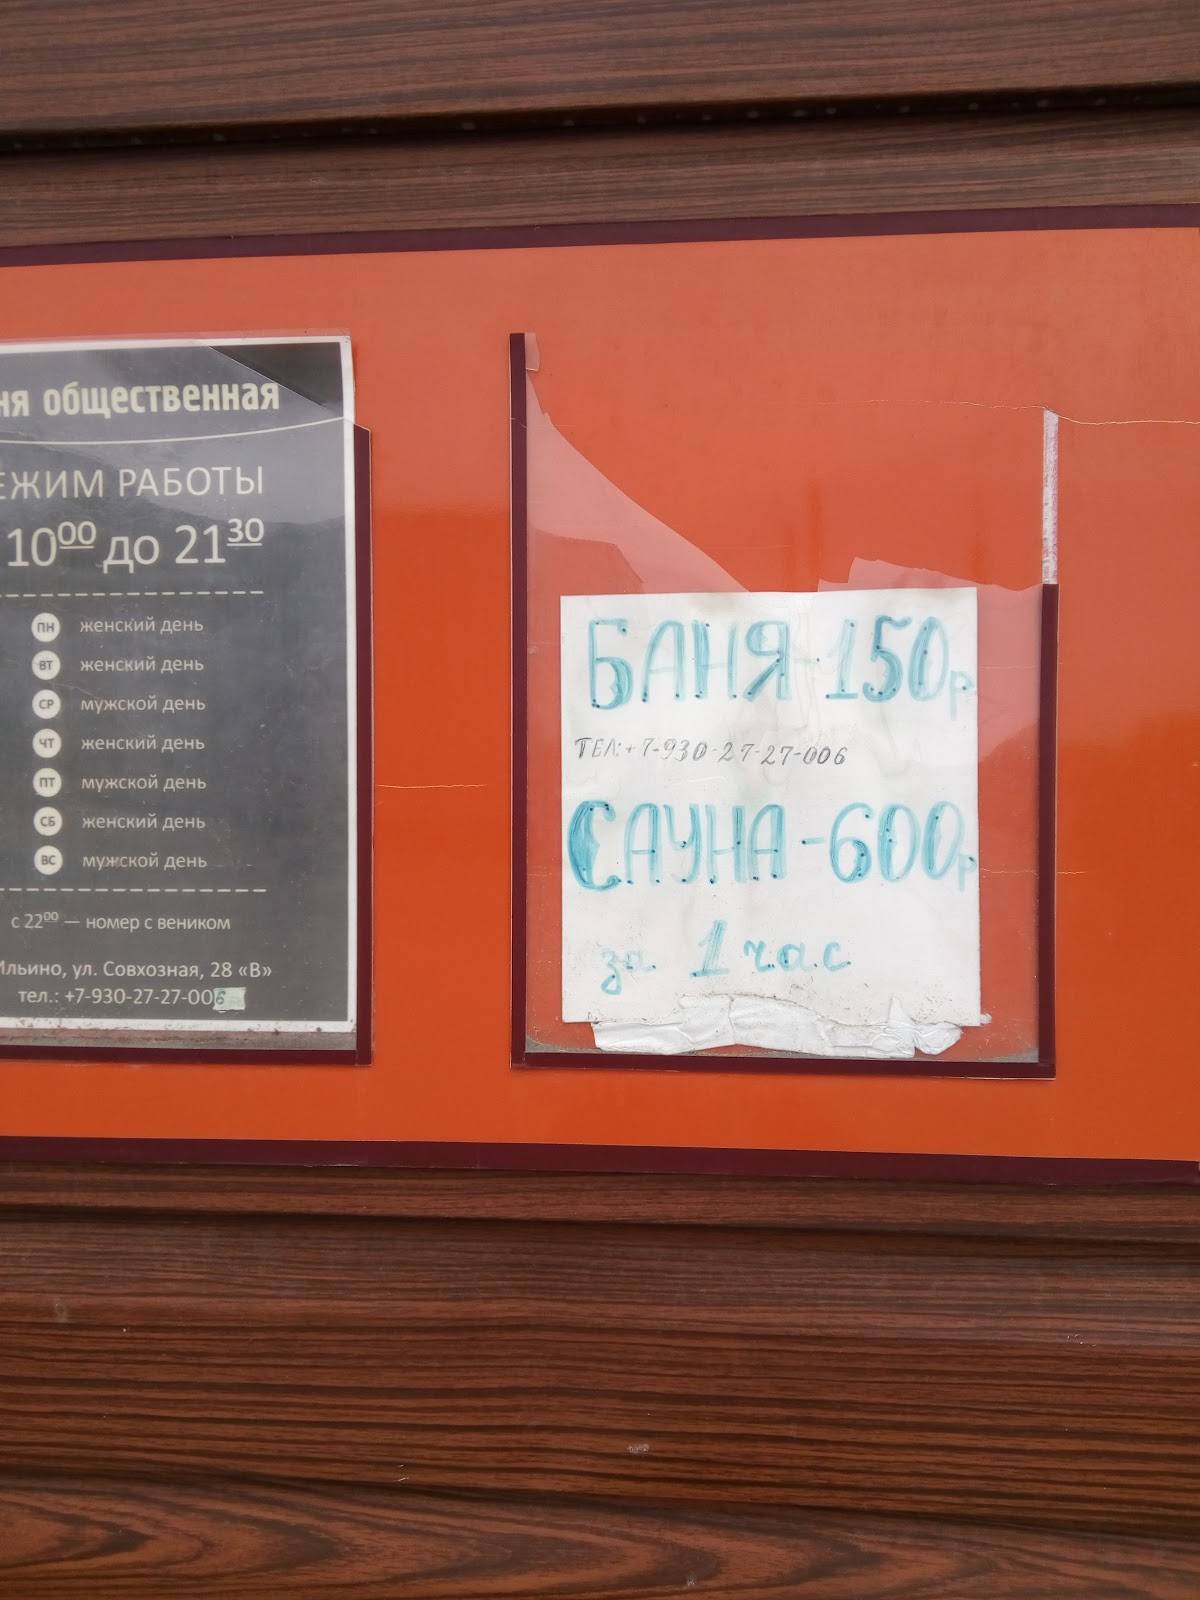 ня общественная
ЕЖИМ РАБОТЫ
10⁰⁰ до 21³⁰
ПН женский день
ВТ женский день
СР мужской день
ЧТ женский день
ПТ мужской день
СБ женский день
ВС мужской день
с 22⁰⁰ — номер с веником
Ильино, ул. Совхозная, 28 «В»
тел.: +7-930-27-27-006
БАНЯ-150р
ТЕЛ:+7-930-27-27-006
САУНА-600р
за 1 час